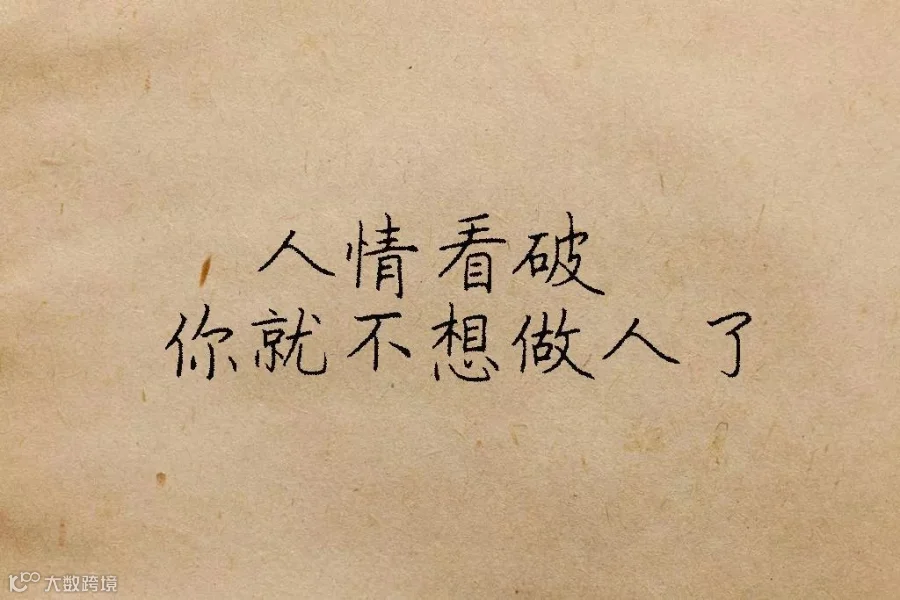 人情看破
你就不想做人了
大数跨境